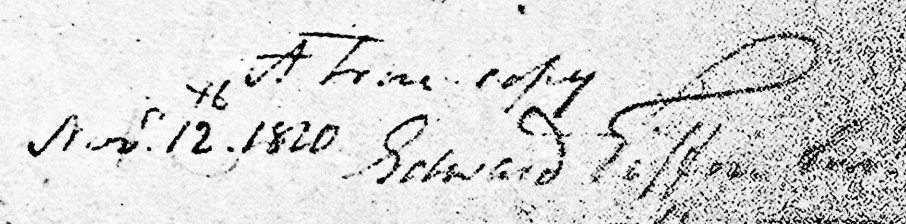 A True copy
Novr. 12th. 1820 Edward Tiffin